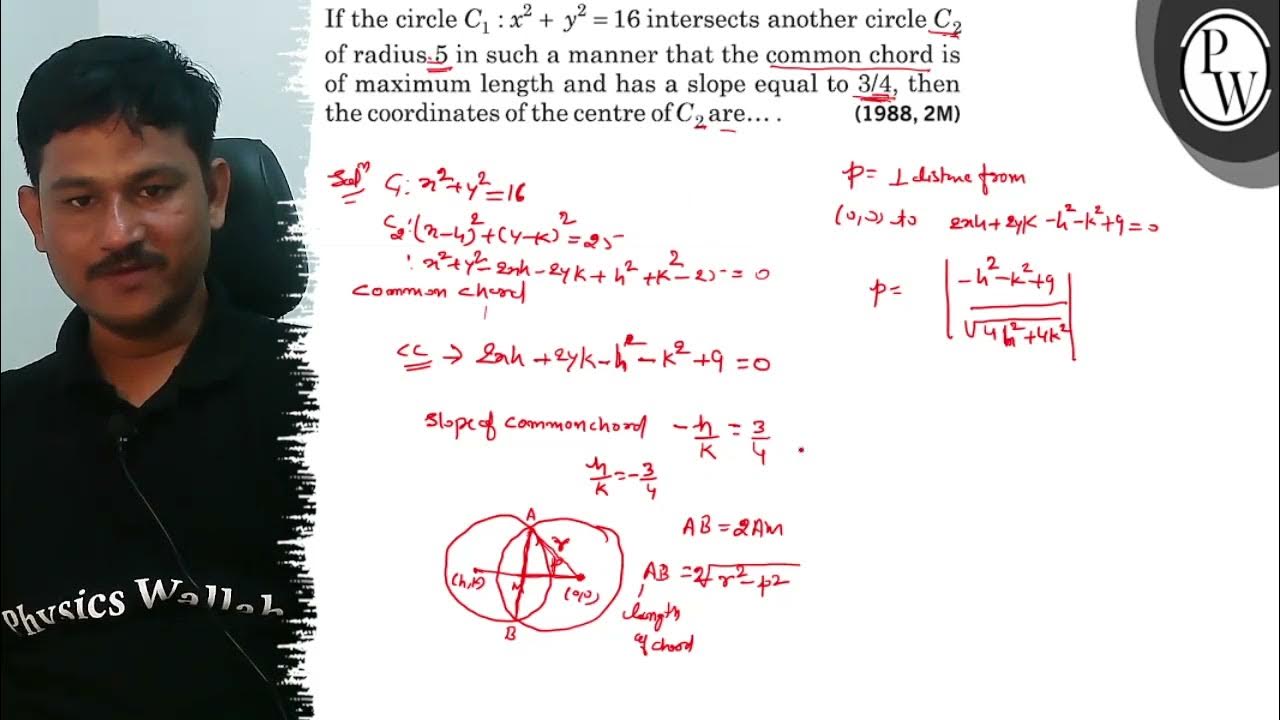 If the circle C₁ : x² + y² = 16 intersects another circle C₂
of radius 5 in such a manner that the common chord is
of maximum length and has a slope equal to 3/4, then
the coordinates of the centre of C₂ are... .
(1988, 2M)
P
W
Solⁿ C₁: x²+y²=16
C₂:(x-h)²+(y-k)²=25
: x²+y²-2xh-2yk+h²+k²-25=0
common chord
CC → 2xh+2yk-h²-k²+9=0
slope of common chord -h/k = 3/4
h/k = -3/4
A
r
P
(h,k)
M
(0,0)
B
AB = 2AM
AB = 2√r²-p²
length
of chord
p = ⊥ distne from
(0,0) to 2xh+2yk-h²-k²+9=0
p = |-h²-k²+9 / √4h²+4k²|
Physics Wallah